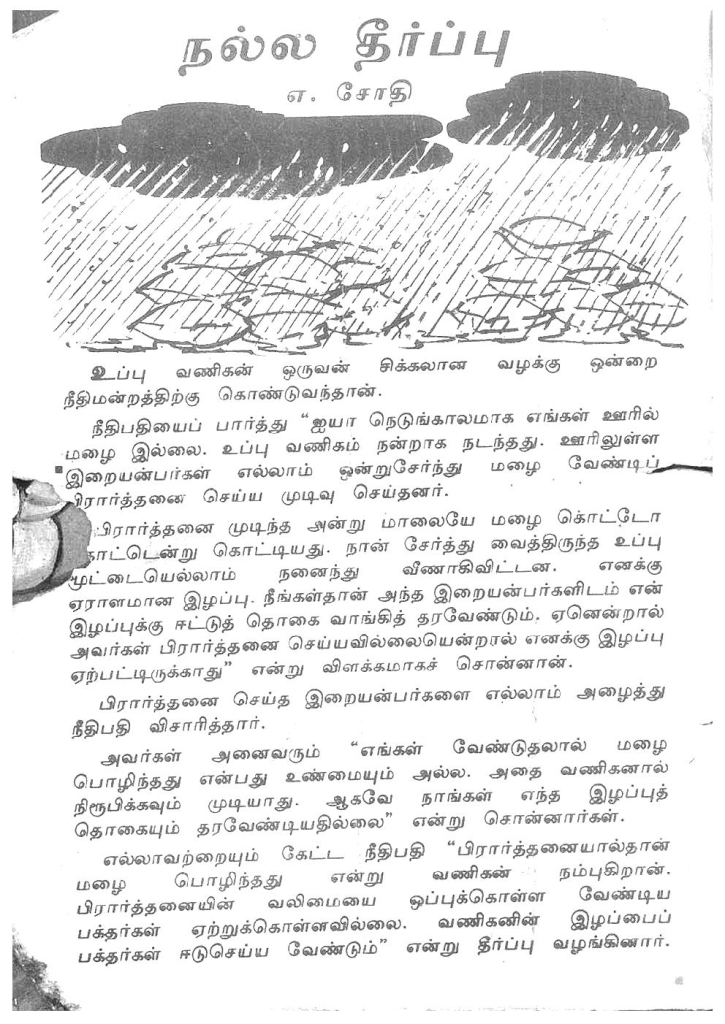 நல்ல தீர்ப்பு
எ. சோதி
உப்பு வணிகன் ஒருவன் சிக்கலான வழக்கு ஒன்றை
நீதிமன்றத்திற்கு கொண்டுவந்தான்.
நீதிபதியைப் பார்த்து “ஐயா நெடுங்காலமாக எங்கள் ஊரில்
மழை இல்லை. உப்பு வணிகம் நன்றாக நடந்தது. ஊரிலுள்ள
இறையன்பர்கள் எல்லாம் ஒன்றுசேர்ந்து மழை வேண்டிப்
பிரார்த்தனை செய்ய முடிவு செய்தனர்.
பிரார்த்தனை முடிந்த அன்று மாலையே மழை கொட்டோ
கொட்டென்று கொட்டியது. நான் சேர்த்து வைத்திருந்த உப்பு
மூட்டையெல்லாம் நனைந்து வீணாகிவிட்டன. எனக்கு
ஏராளமான இழப்பு. நீங்கள்தான் அந்த இறையன்பர்களிடம் என்
இழப்புக்கு ஈட்டுத் தொகை வாங்கித் தரவேண்டும். ஏனென்றால்
அவர்கள் பிரார்த்தனை செய்யவில்லையென்றால் எனக்கு இழப்பு
ஏற்பட்டிருக்காது” என்று விளக்கமாகச் சொன்னான்.
பிரார்த்தனை செய்த இறையன்பர்களை எல்லாம் அழைத்து
நீதிபதி விசாரித்தார்.
அவர்கள் அனைவரும் “எங்கள் வேண்டுதலால் மழை
பொழிந்தது என்பது உண்மையும் அல்ல. அதை வணிகனால்
நிரூபிக்கவும் முடியாது. ஆகவே நாங்கள் எந்த இழப்புத்
தொகையும் தரவேண்டியதில்லை” என்று சொன்னார்கள்.
எல்லாவற்றையும் கேட்ட நீதிபதி “பிரார்த்தனையால்தான்
மழை பொழிந்தது என்று வணிகன் நம்புகிறான்.
பிரார்த்தனையின் வலிமையை ஒப்புக்கொள்ள வேண்டிய
பக்தர்கள் ஏற்றுக்கொள்ளவில்லை. வணிகனின் இழப்பைப்
பக்தர்கள் ஈடுசெய்ய வேண்டும்” என்று தீர்ப்பு வழங்கினார்.